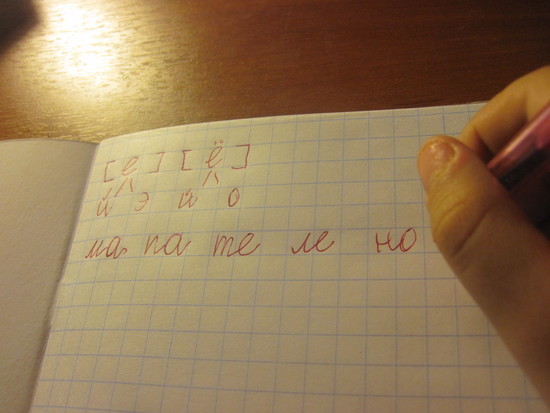 [ е ] [ ё ]
й э й о
ма па те ле но